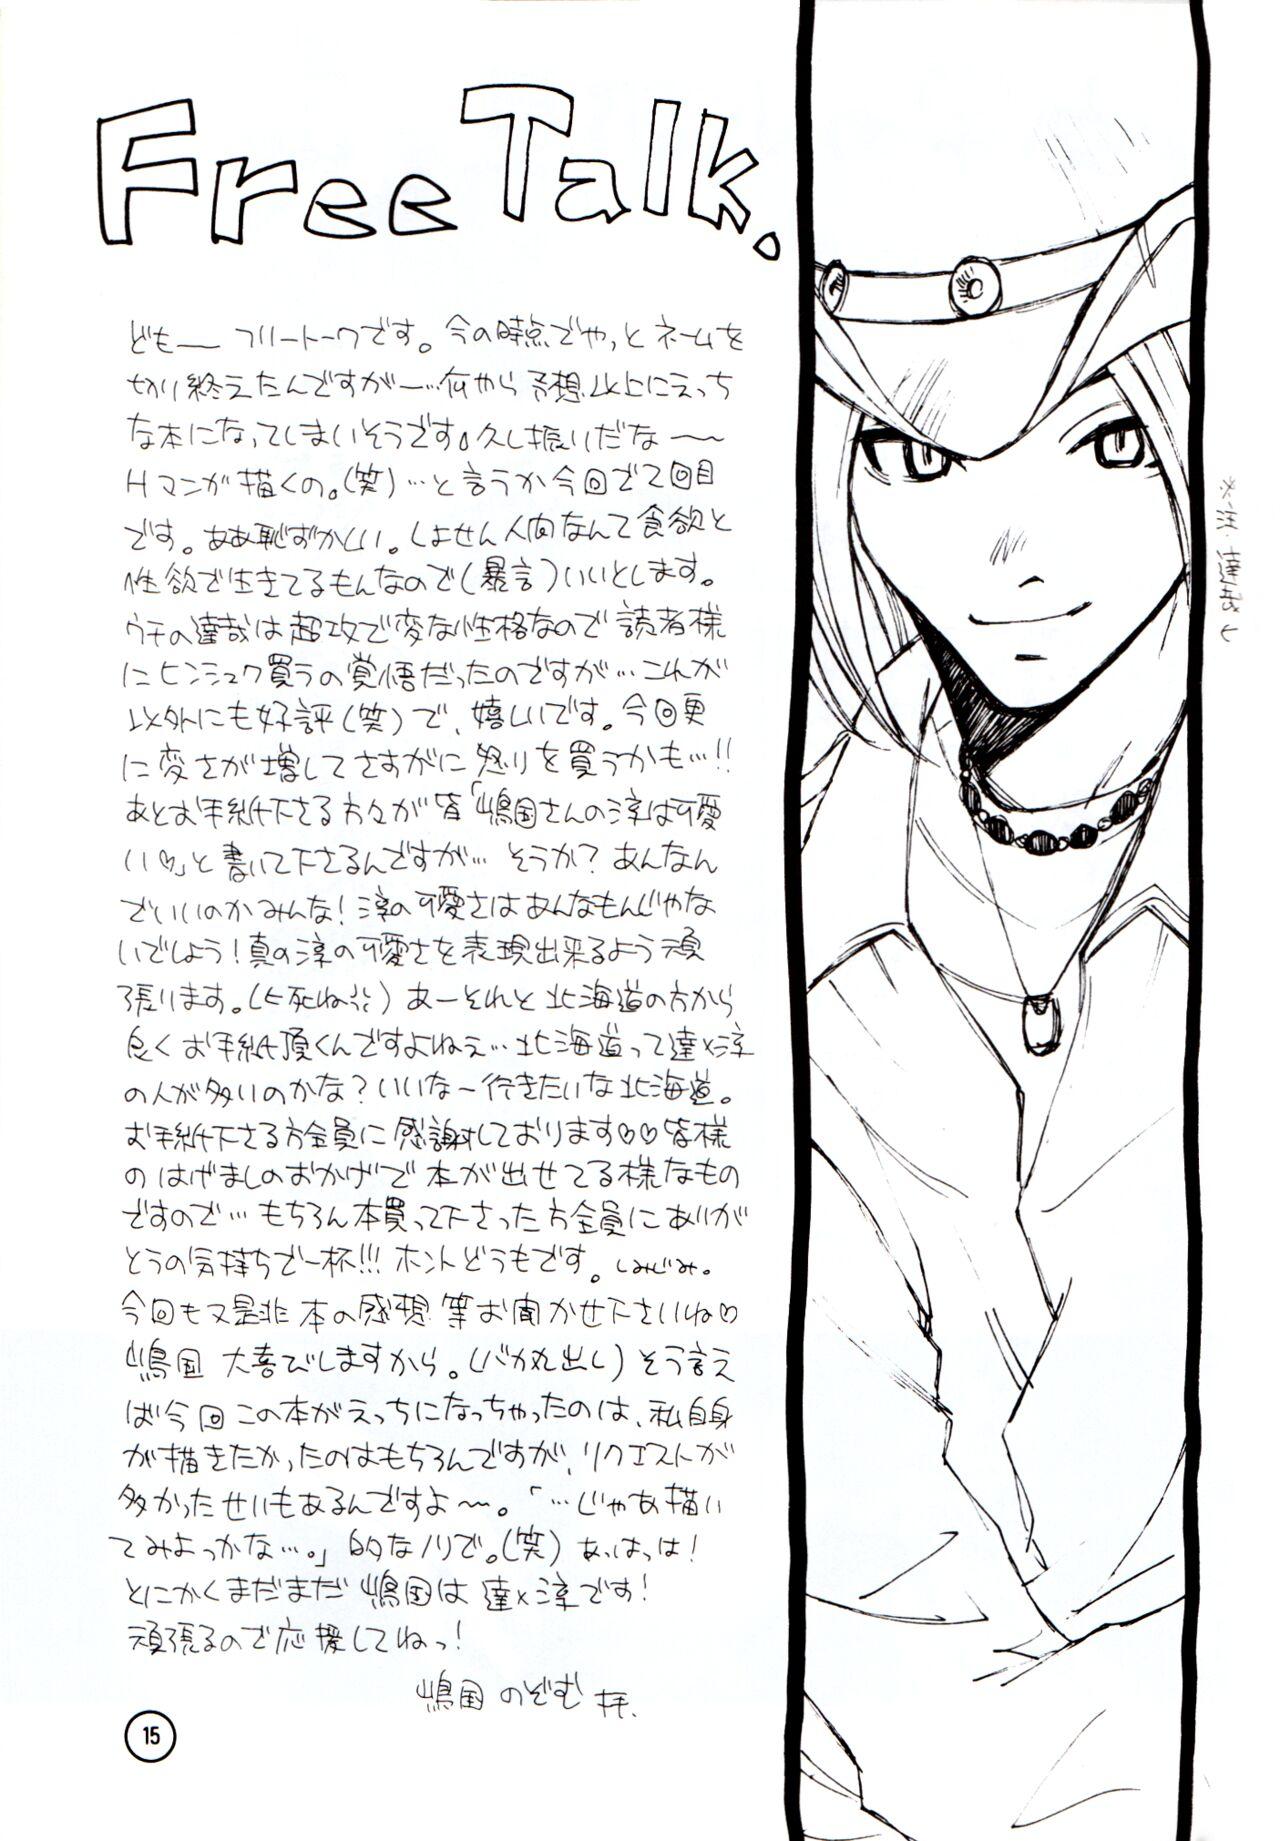 Free Talk.
どもー フリートークです。今の時点でやっと ネームを
切り終えたんですがー…何やら 予想以上にえっち
な本になってしまいそうです。久し振りだなー
Hマンガ描くの。(笑)…と言うか今回で2回目
です。ああ恥ずかしい。しょせん人間なんて食欲と
性欲で生きてるもんなので(暴言)いいとします。
ウチの達哉は超攻で変な性格なので読者様
にヒンシュク買うの覚悟だったのですが…これが
以外にも好評(笑)で、嬉しいです。今回更
に変さが増してさすがに怒りを買うかも…!!
あとお手紙下さる方々が皆「嶋国さんの淳は可愛
い♡」と書いて下さるんですが… そうか?あんなん
でいいのかみんな!淳の可愛さはあんなもんじゃな
いでしょう!真の淳の可愛さを表現出来るよう頑
張ります。(←死ね) あーそれと 北海道の方から
良くお手紙頂くんですよねぇ…北海道って達×淳
の人が多いのかな?いいなー行きたいな北海道。
お手紙下さる方全員に感謝しております♡♡皆様
のはげましのおかげで本が出せてる様なもの
ですので… もちろん本買って下さった方全員にありが
とうの気持ちで一杯!!! ホントどうもです。しみじみ。
今回も又是非 本の感想 等お聞かせ下さいね♡
嶋国 大喜びしますから。(バカ丸出し)そう言え
ば今回この本がえっちになっちゃったのは、私自身
が描きたかったのはもちろんですが、リクエストが
多かったせいもあるんですよ〜。「…じゃあ描い
てみよっかな…。」的なノリで。(笑) あっはっは!
とにかくまだまだ 嶋国は 達×淳です!
頑張るので応援してねっ!
嶋国 のぞむ 拝.
※注・達哉
15